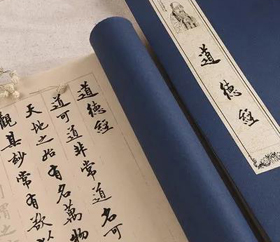 道德經
道德經
道可道非常道名可
天地之始有名萬物
觀其妙常有欲以